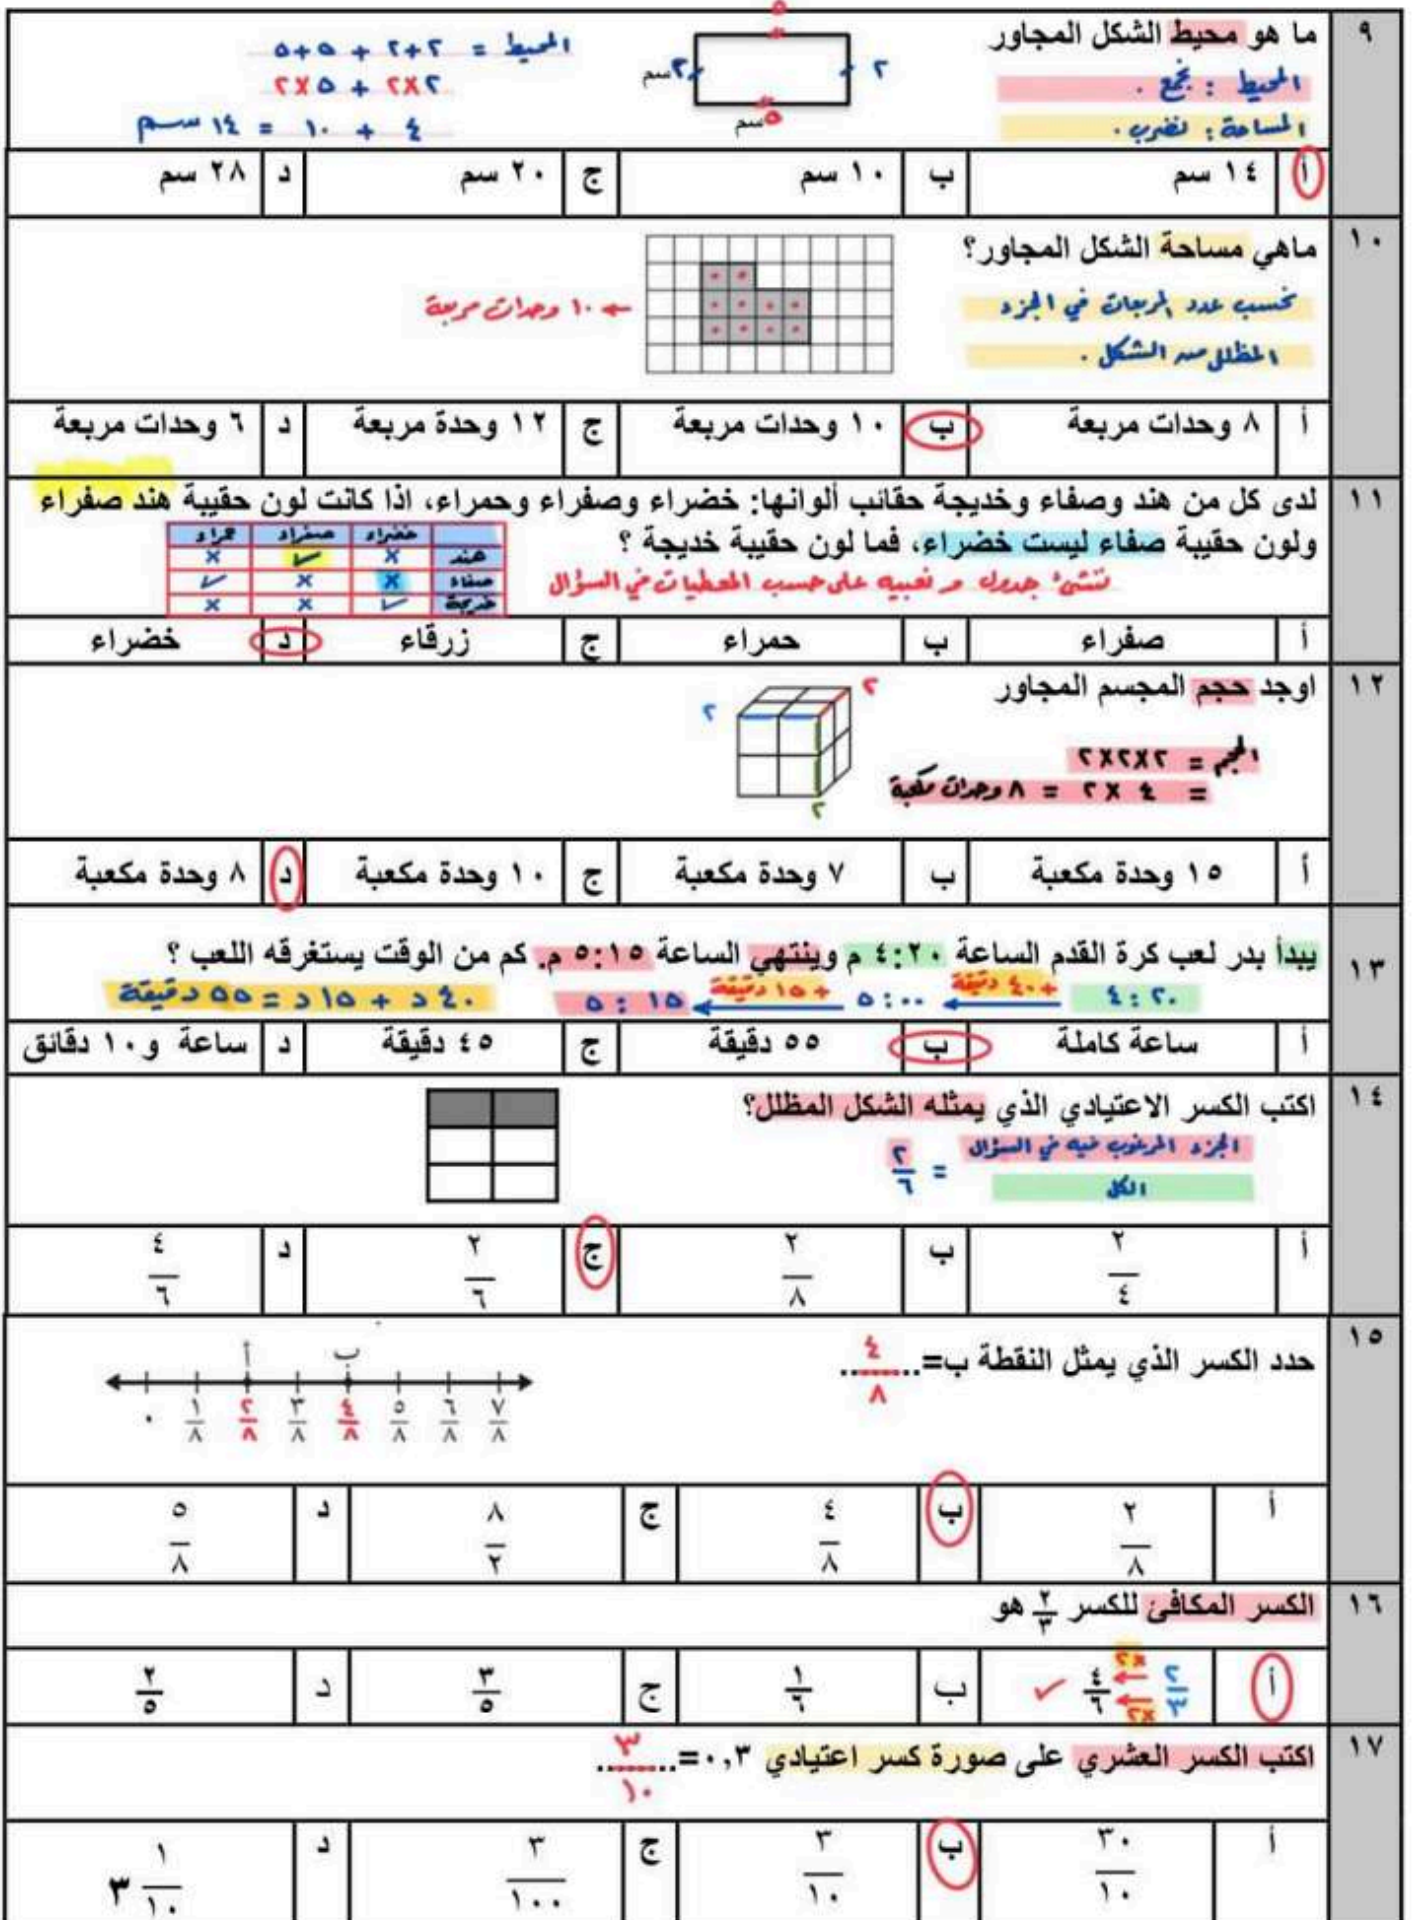 ٩ ما هو محيط الشكل المجاور
المحيط : نجمع .
المساحة : نضرب .
٥
٢
٢سم
٥سم
المحيط = ٢+٢ + ٥+٥
٢×٢ + ٥×٢
٤ + ١٠ = ١٤ سم
أ ١٤ سم ب ١٠ سم ج ٢٠ سم د ٢٨ سم
١٠ ماهي مساحة الشكل المجاور؟
نحسب عدد المربعات في الجزء
المظلل من الشكل .
← ١٠ وحدات مربعة
أ ٨ وحدات مربعة ب ١٠ وحدات مربعة ج ١٢ وحدة مربعة د ٦ وحدات مربعة
١١ لدى كل من هند وصفاء وخديجة حقائب ألوانها: خضراء وصفراء وحمراء، اذا كانت لون حقيبة هند صفراء
ولون حقيبة صفاء ليست خضراء، فما لون حقيبة خديجة ؟
ننشئ جدول و نعبيه على حسب المعطيات في السؤال
خضراء صفراء حمراء
هند × ✓ ×
صفاء × × ✓
خديجة ✓ × ×
أ صفراء ب حمراء ج زرقاء د خضراء
١٢ اوجد حجم المجسم المجاور
٢
٢
٢
الحجم = ٢×٢×٢
= ٤ × ٢ = ٨ وحدات مكعبة
أ ١٥ وحدة مكعبة ب ٧ وحدة مكعبة ج ١٠ وحدة مكعبة د ٨ وحدة مكعبة
١٣ يبدأ بدر لعب كرة القدم الساعة ٤:٢٠ م وينتهي الساعة ٥:١٥ م. كم من الوقت يستغرقه اللعب ؟
٤:٢٠ +٤٠ دقيقة ٥:٠٠ +١٥ دقيقة ٥:١٥
٤٠ د + ١٥ د = ٥٥ دقيقة
أ ساعة كاملة ب ٥٥ دقيقة ج ٤٥ دقيقة د ساعة و١٠ دقائق
١٤ اكتب الكسر الاعتيادي الذي يمثله الشكل المظلل؟
الجزء المرغوب فيه في السؤال
الكل
= ٢/٦
أ ٢/٤ ب ٢/٨ ج ٢/٦ د ٤/٦
١٥ حدد الكسر الذي يمثل النقطة ب=..٤/٨..
أ ب
٠ ١/٨ ٢/٨ ٣/٨ ٤/٨ ٥/٨ ٦/٨ ٧/٨
أ ٢/٨ ب ٤/٨ ج ٨/٢ د ٥/٨
١٦ الكسر المكافئ للكسر ٢/٣ هو
أ ٢/٣ ×٢ ×٢ ٤/٦ ✓ ب ١/٦ ج ٣/٥ د ٢/٥
١٧ اكتب الكسر العشري على صورة كسر اعتيادي ٠,٣=..٣/١٠..
أ ٣٠/١٠ ب ٣/١٠ ج ٣/١٠٠ د ٣ ١/١٠